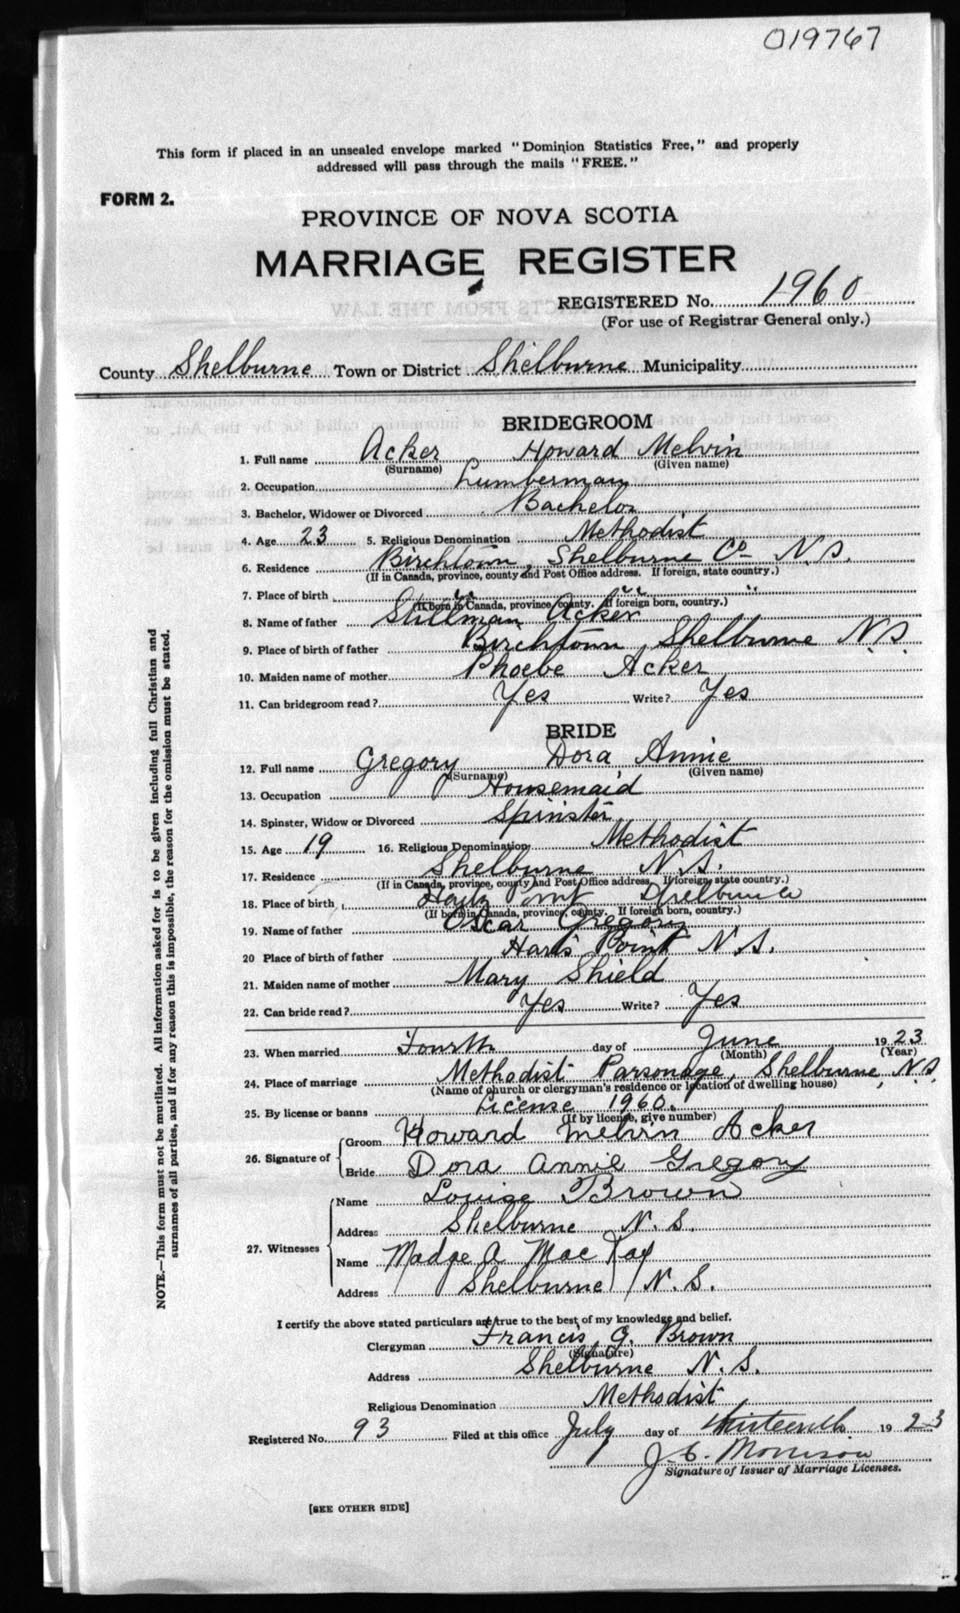 019767
This form if placed in an unsealed envelope marked "Dominion Statistics Free," and properly
addressed will pass through the mails "FREE."
FORM 2.
PROVINCE OF NOVA SCOTIA
MARRIAGE REGISTER
REGISTERED No. 1960
(For use of Registrar General only.)
County Shelburne Town or District Shelburne Municipality
BRIDEGROOM
1. Full name Acker Howard Melvin
(Surname) (Given name)
2. Occupation Lumberman
3. Bachelor, Widower or Divorced Bachelor
4. Age 23 5. Religious Denomination Methodist
6. Residence Birchtown, Shelburne Co N.S.
(If in Canada, province, county and Post Office address. If foreign, state country.)
7. Place of birth " " "
(If born in Canada, province, county. If foreign born, country.)
8. Name of father Stillman Acker
9. Place of birth of father Birchtown, Shelburne N.S.
10. Maiden name of mother Phoebe Acker
11. Can bridegroom read? Yes Write? Yes
BRIDE
12. Full name Gregory Dora Annie
(Surname) (Given name)
13. Occupation Housemaid
14. Spinster, Widow or Divorced Spinster
15. Age 19 16. Religious Denomination Methodist
17. Residence Shelburne N.S.
(If in Canada, province, county and Post Office address. If foreign, state country.)
18. Place of birth Point Shelburne
(If born in Canada, province, county. If foreign born, country.)
19. Name of father Oscar Gregory
20 Place of birth of father Harts Point N.S.
21. Maiden name of mother Mary Shield
22. Can bride read? Yes Write? Yes
23. When married Fourth day of June 1923
(Month) (Year)
24. Place of marriage Methodist Parsonage, Shelburne, N.S.
(Name of church or clergyman's residence or location of dwelling house)
25. By license or banns License 1960.
(If by license, give number)
26. Signature of
Groom Howard Melvin Acker
Bride Dora Annie Gregory
27. Witnesses
Name Louise Brown
Address Shelburne N.S.
Name Madge A MacKay
Address Shelburne N.S.
I certify the above stated particulars are true to the best of my knowledge and belief.
Clergyman Francis G. Brown
(Signature)
Address Shelburne N.S.
Religious Denomination Methodist
Registered No. 93 Filed at this office July day of thirteenth 1923
J. C. Morrison
Signature of Issuer of Marriage Licenses.
[SEE OTHER SIDE]
NOTE.—This form must not be mutilated. All information asked for is to be given including full Christian and
surnames of all parties, and if for any reason this is impossible, the reason for the omission must be stated.